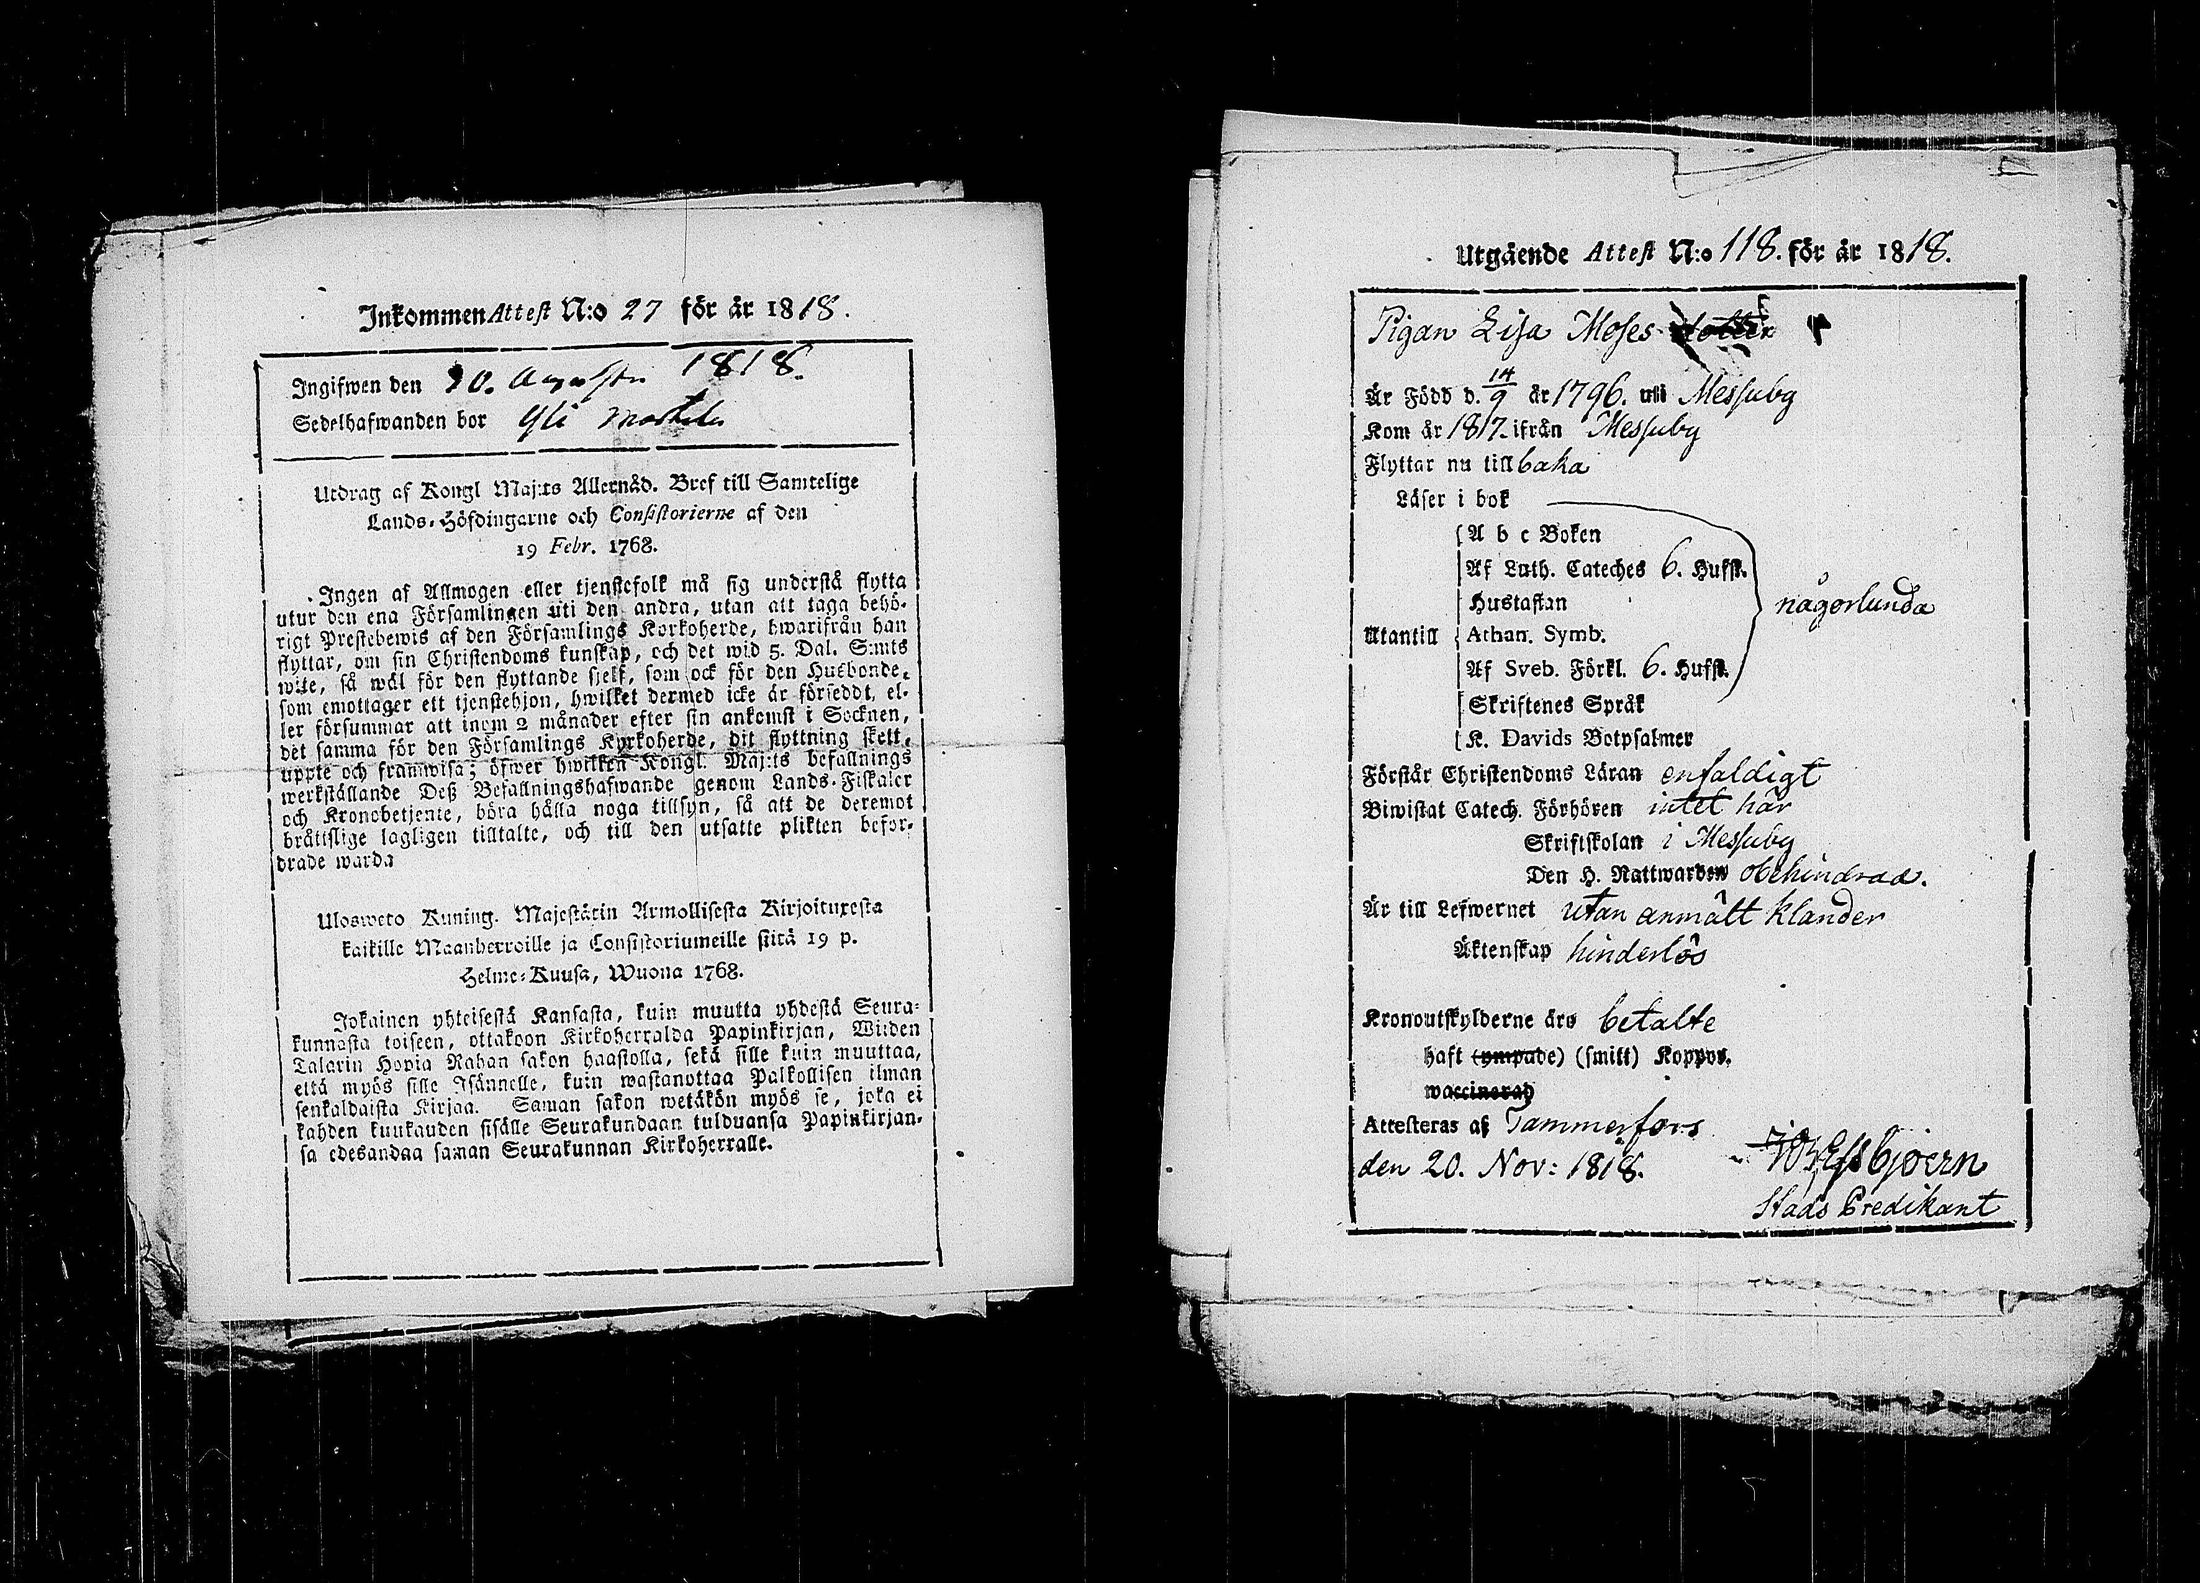 Inkommen Attest N:o 27 för år 1818.
Ingifwen den 30. Augusti 1818.
Sedelhafwanden bor Yli
Utdrag af Kongl Maj:ts Allernåd. Bref till Samtelige
Lands-Höfdingarne och Consistorierne af den
19 Febr. 1768.
Ingen af Allmogen eller tjenstefolk må sig understå flytta
utur den ena Församlingen uti den andra, utan att taga behö-
rigt Prestebewis af den Församlings Kyrkoherde, hwarifrån han
flyttar, om sin Christendoms kunskap, och det wid 5. Dal. S:mts
wite, så wäl för den flyttande sjelf, som ock för den Husbonde,
som emottager ett tjenstehjon, hwilket dermed icke är förseddt, el-
ler försummar att inom 2 månader efter sin ankomst i Socknen,
det samma för den Församlings Kyrkoherde, dit flyttning skett,
uppte och framwisa; öfwer hwilken Kongl. Maj:ts befallnings
werkställande Deß Befallningshafwande genom Lands-Fiskaler
och Kronobetjente, böra hålla noga tillsyn, så att de deremot
bråttslige lagligen tilltalte, och till den utsatte plikten befor-
drade warda
Ulosweto Kuning. Majestätin Armollisesta Kirjoituxesta
kaikille Maanherroille ja Consistoriumeille siitä 19 p.
Helme-Kuusa, Wuona 1768.
Jokainen yhteisestä Kansasta, kuin muutta yhdestä Seura-
kunnasta toiseen, ottakoon Kirkoherralda Papinkirjan, Wiiden
Talarin Hopia Rahan sakon haastolla, sekä sille kuin muuttaa,
että myös sille Isännelle, kuin wastanottaa Palkollisen ilman
senkaldaista Kirjaa. Saman sakon wetäkön myös se, joka ei
kahden kuukauden sisälle Seurakundaan tulduansa Papinkirjan-
sa edesandaa saman Seurakunnan Kirkoherralle.
Utgående Attest N:o 118. för år 1818.
Pigan Lisa Moses dotter
Är Född d. 14/9 år 1796. uti Messuby
Kom år 1817. ifrån Messuby
Flyttar nu tillbaka
Läser i bok
A b c Boken
Af Luth. Cateches 6. Hufst.
Hustaflan
någorlunda
Utantill Athan. Symb.
Af Sveb. Förkl. 6. Hufst.
Skriftenes Språk
K. Davids Botpsalmer
Förstår Christendoms Läran enfaldigt
Biwistat Catech. Förhören intet här
Skriftskolan i Messuby
Den H. Nattwarden obehindrad.
Är till Lefwernet utan anmält klander
Äktenskap hinderlös
Kronoutskylderne äro betalte
haft (ympade) (smitt) Koppor.
waccinerad
Attesteras af Tammerfors
den 20. Nov: 1818.
Stads Predikant